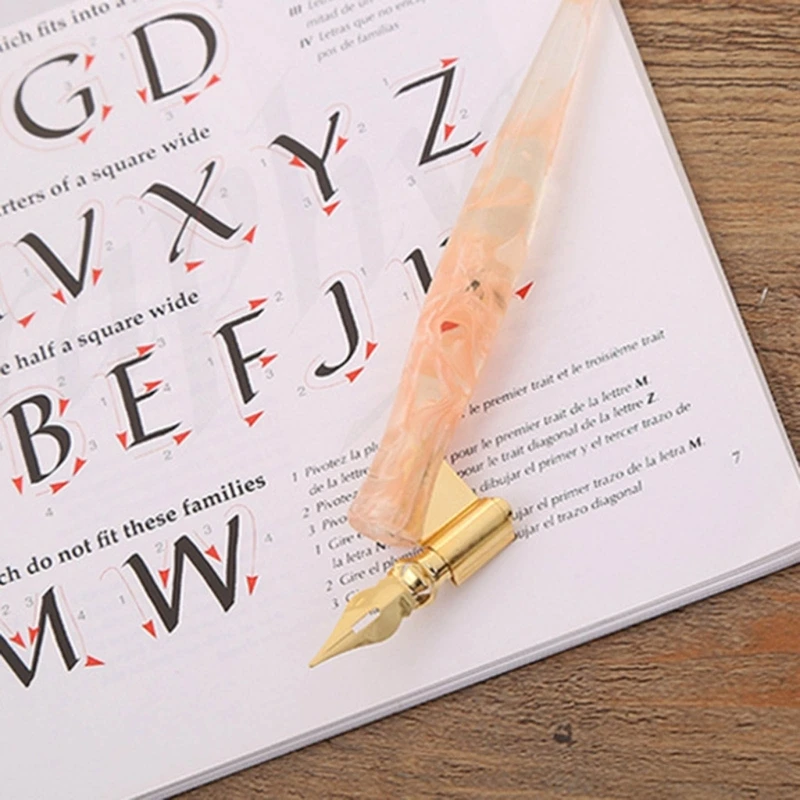 ich fits into a
G D
rters of a square wide
V X Y Z
e half a square wide
B E F J
ch do not fit these families
M W
III Letras
mitad de un
IV Letras que no enc
pos de familias
le premier trait et le troisième trait
1 Pivotez la pl pour le premier trait de la lettre M.
de la lettre pour le trait diagonal de la lettre Z.
2 Pivotez dibujar el primer y el tercer trazo de
3 Pivotez
1 Gire ujar el primer trazo de la letra M.
la letra N ujar el trazo diagonal
2 Gire el
3
7